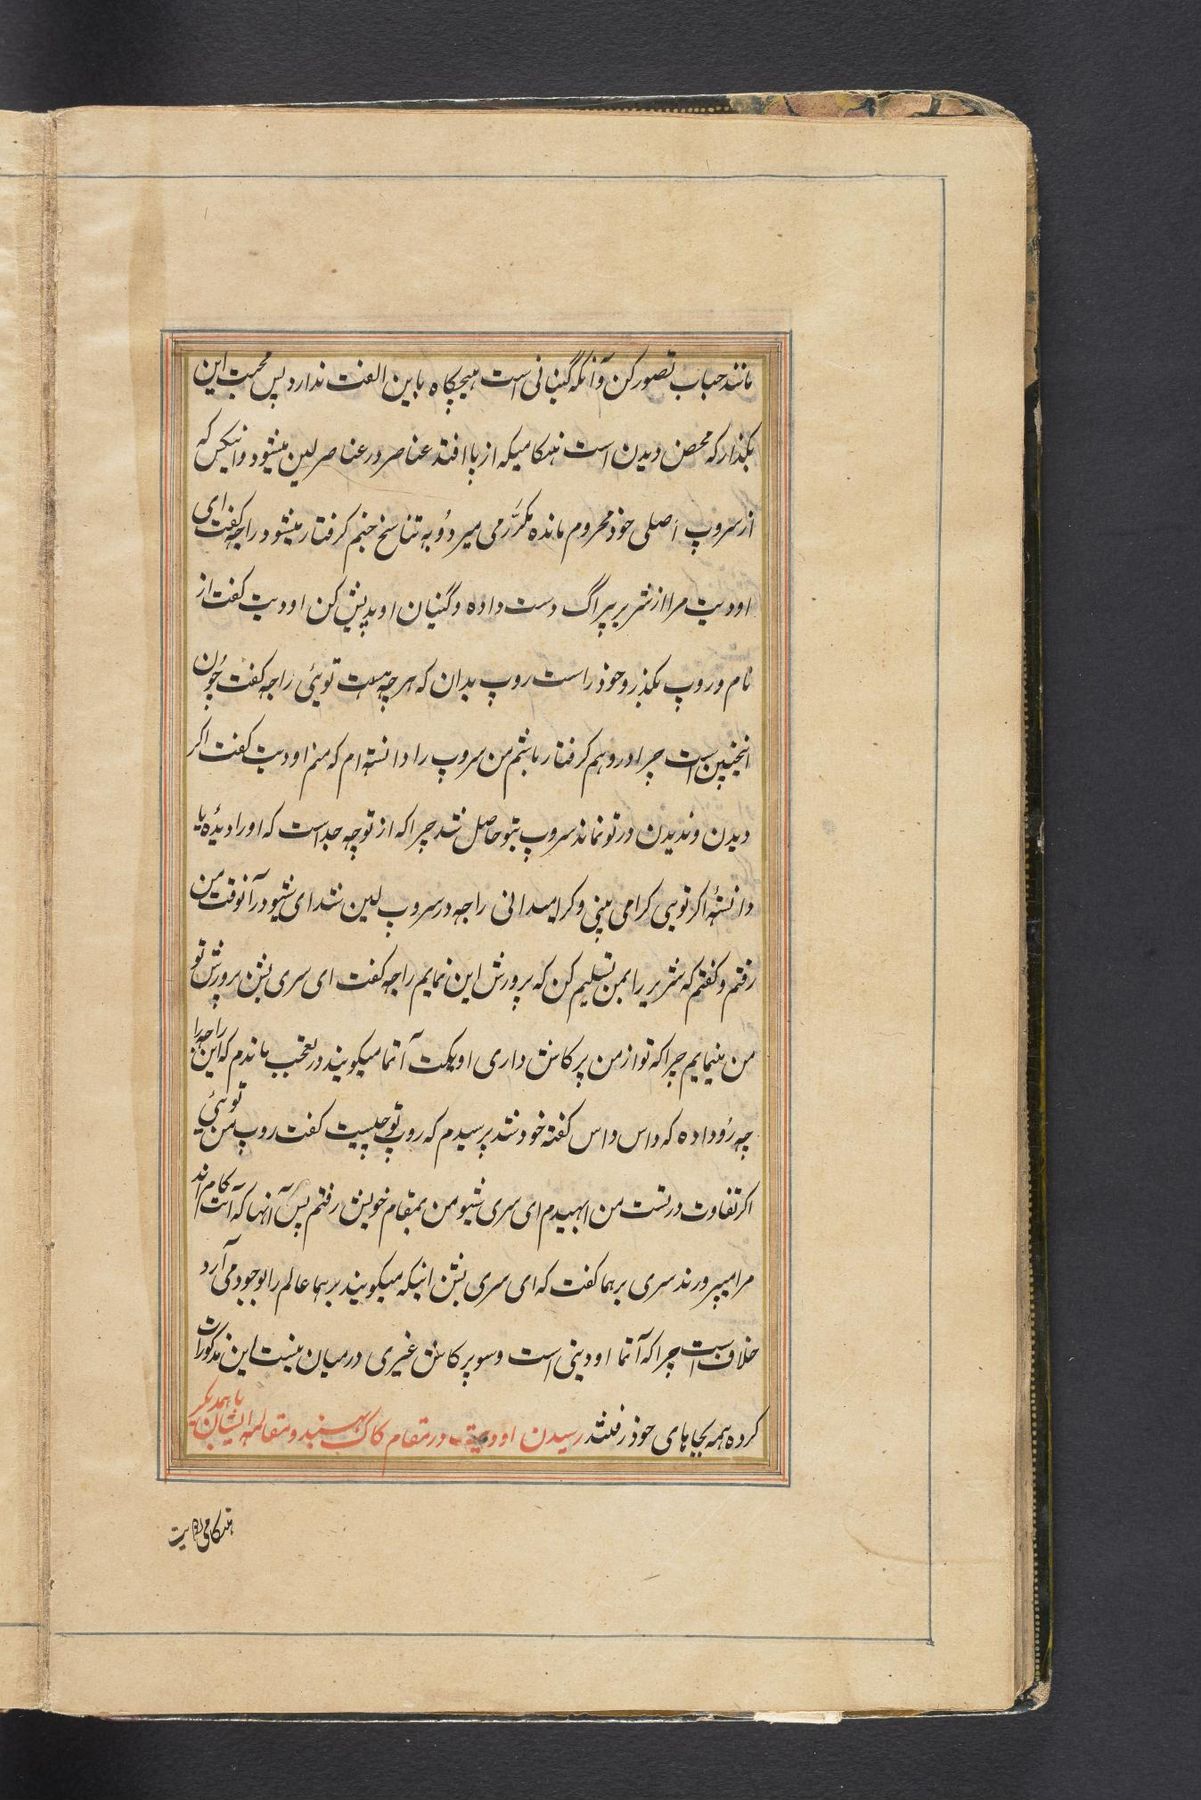 مانند حباب تصور کن و آنکه گیانی است هیچگاه باین الفت ندارد پس محبت این
بگذار که محض دیدن است هنگامیکه از پا افتد عناصر در عناصر لین میشود و انیکس که
از سروپ اصلی خود محروم مانده مکرّر می میرد و به تناسخ جنم گرفتار میشود راجه گفت ای
اودیت مرا از شریر بیراگ دست داده و گیان اوپدیش کن اودیت گفت از
نام و روپ بگذر و خود راست روپ بدان که هرچه هست توئی راجه گفت چون
اینچنین است چرا در وهم گرفتار باشم من سروپ را دانسته ام که منم اودیت گفت اگر
دیدن و ندیدن در تو نماند سروپ بتو حاصل شد چرا که از تو چه جداست که او را دیدهٔ یا
دانستهٔ اگر توئی کرا می بینی و کرا میدانی راجه در سروپ لین شد ای شیو در آنوقت من
رفتم و گفتم که شریر را بمن تسلیم کن که پرورش این نمایم راجه گفت ای سری بشن پرورش تو
من مینمایم چرا که تو از من پرکاش داری او یکت آتما میگویند در تعجب ماندم که این راجه را
چه رو داده که داس داس گفته خود شد پرسیدم که روپ تو چیست گفت روپ من توئی
اگر تفاوت درتست من ابهیدم ای سری شیو من بمقام خویش رفتم پس آنها که آتما کام اند
مرا میپرورند سری برهما گفت که ای سری بشن اینکه میگویند برهما عالم را بوجود می آرد
خلاف است چرا که آتما اودیتی است و سوپرکاش غیری درمیان نیست این مذکورات
کرده همه بجاهای خود رفتند رسیدن اودیت در مقام کاک بهسند و مقالهٔ ایشان باهمدیگر
هنگامی اودیت